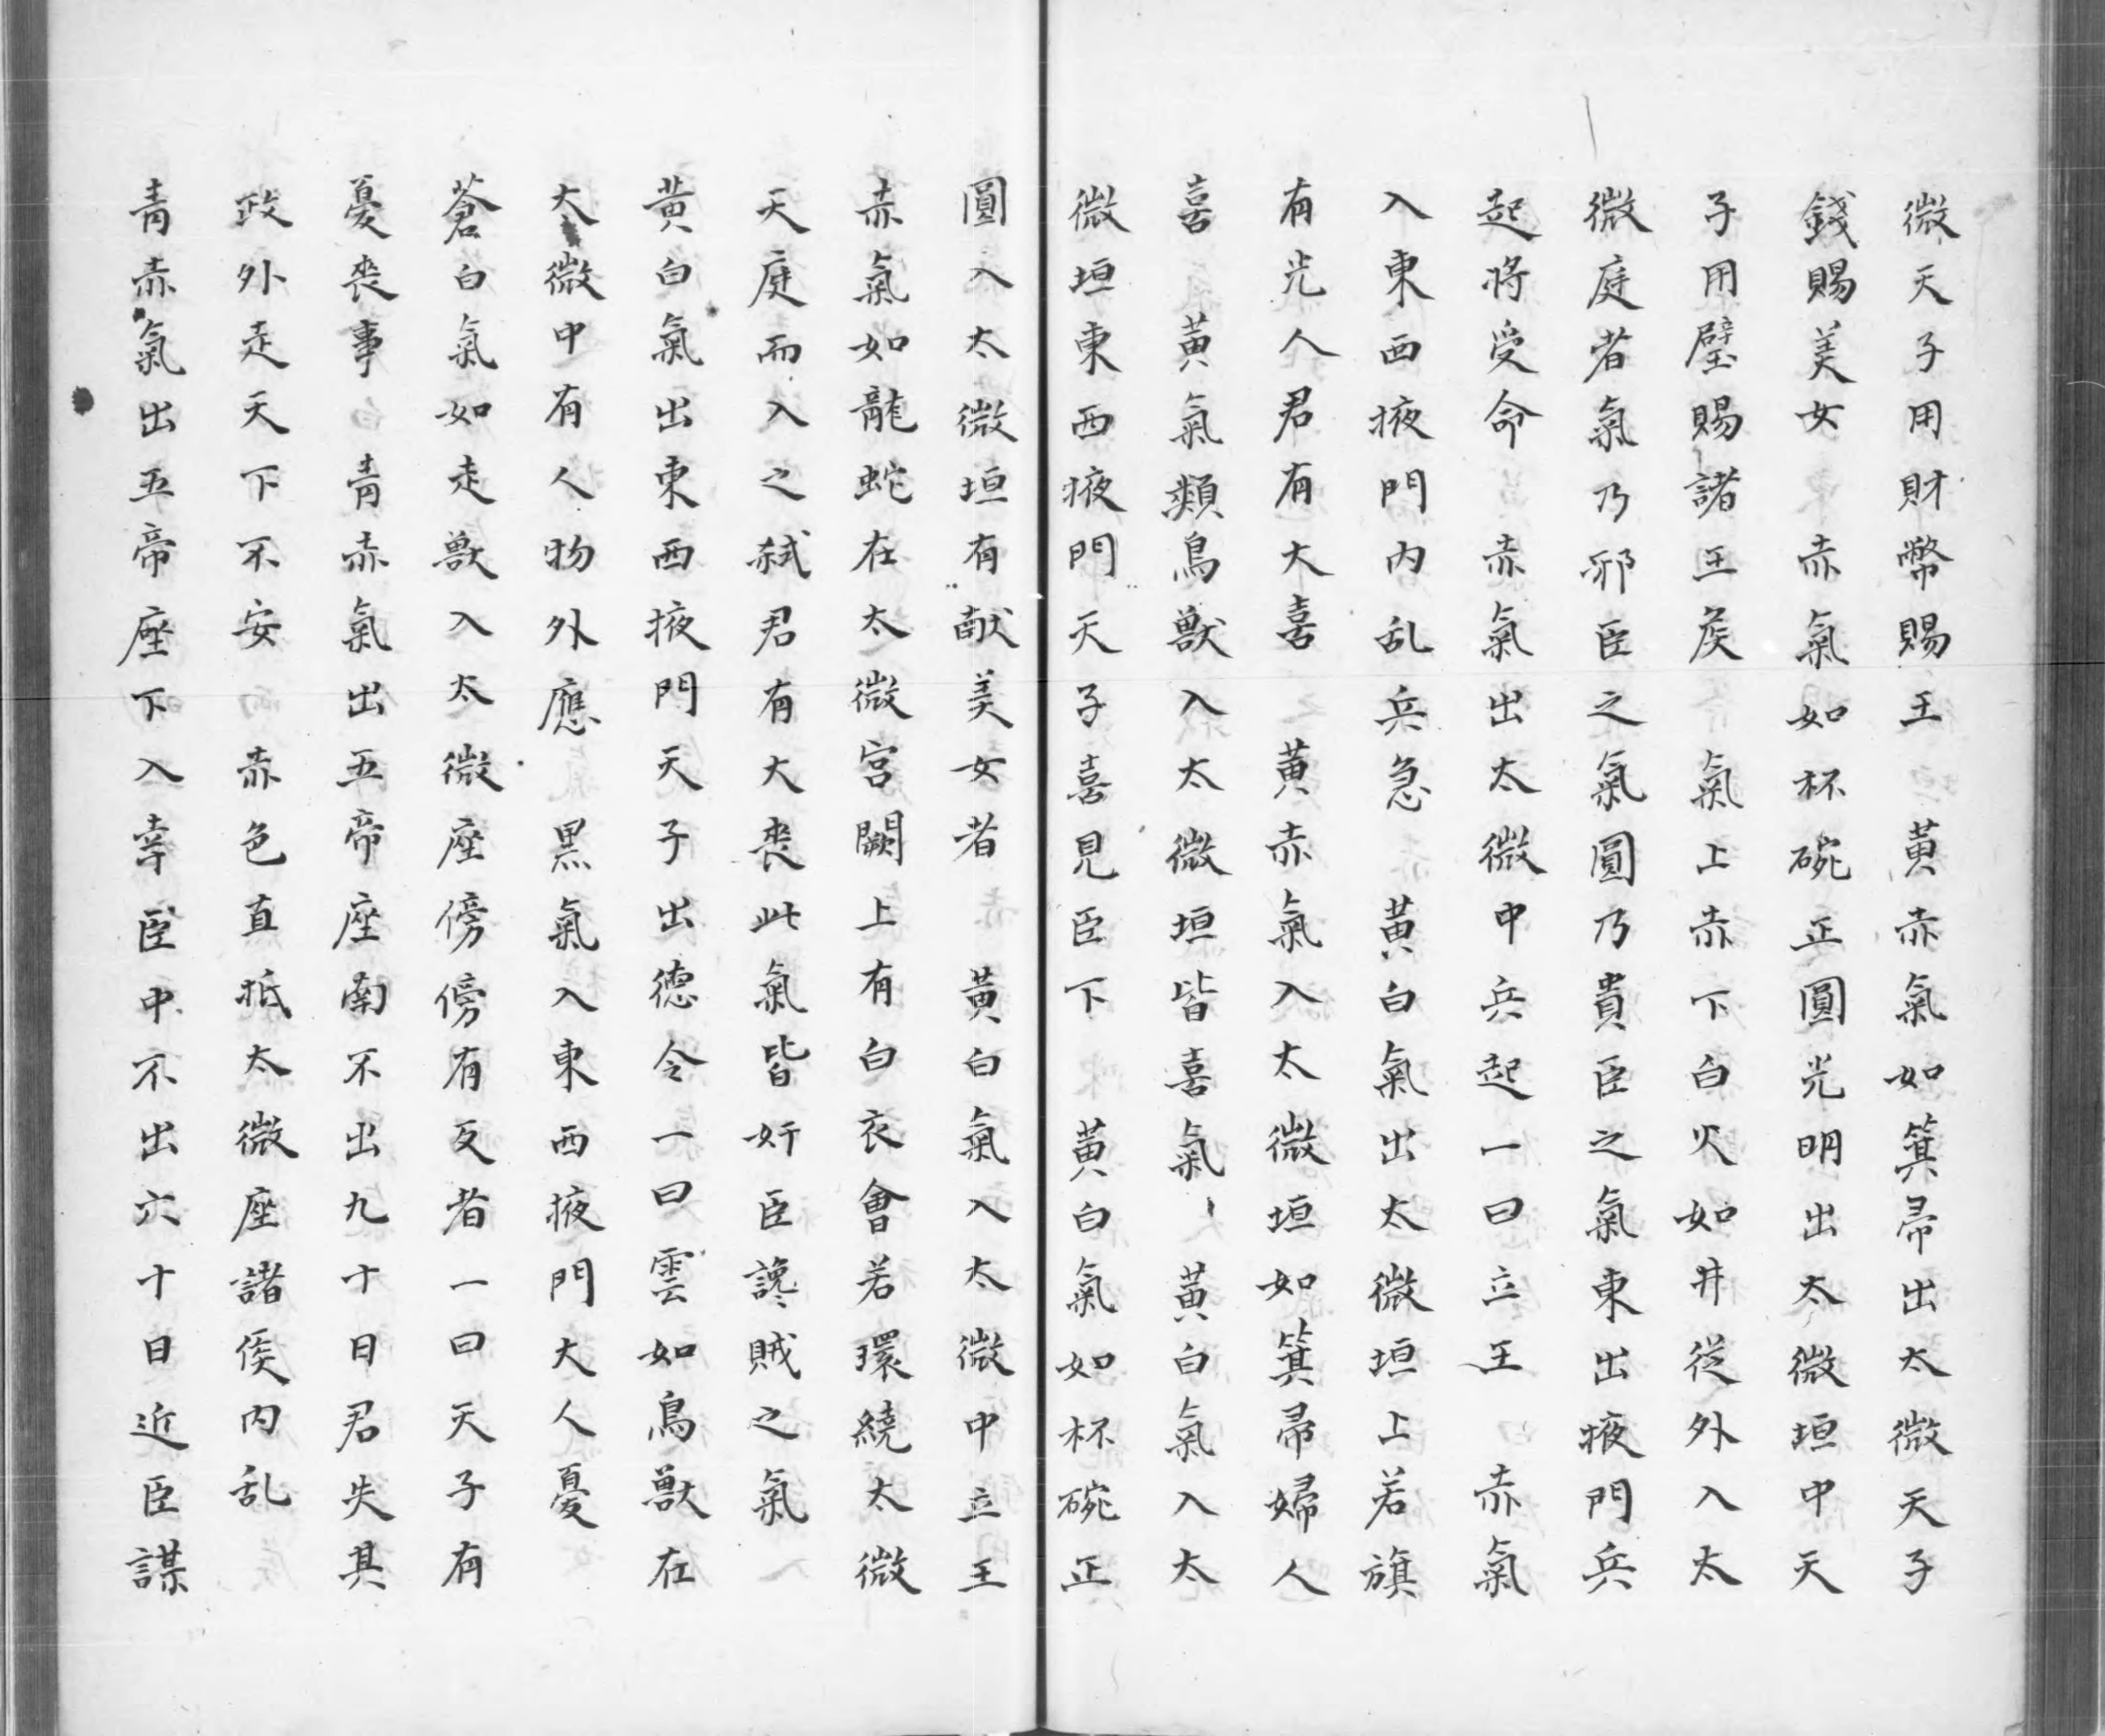 微天子用財幣賜王　黄赤氣如箕帚出太微天子
錢賜美女　赤氣如杯碗正圓光明出太微垣中天
子用璧賜諸王矦　氣上赤下白火如井從外入太
微庭者氣乃邪臣之氣圓乃貴臣之氣東出掖門兵
起將受命　赤氣出太微中兵起一曰立王　赤氣
入東西掖門内乱兵急　黄白氣出太微垣上若旗
有光人君有大喜　黄赤氣入太微垣如箕帚婦人
喜　黄氣類鳥獸入太微垣皆喜氣　黄白氣入太
微垣東西掖門天子喜見臣下　黄白氣如杯碗正
圓入太微垣有献美女者　黄白氣入太微中立王
赤氣如龍蛇在太微宮闕上有白衣會若環繞太微
天庭而入之弑君有大喪此氣皆奸臣讒賊之氣
黄白氣出東西掖門天子出德令一曰雲如鳥獸在
大微中有人物外應　黒氣入東西掖門大人憂
蒼白氣如走獸入太微座傍傍有反者一曰天子有
憂喪事　青赤氣出五帝座南不出九十日君失其
政外走天下不安　赤色直抵太微座諸侯内乱
青赤氣出五帝座下入幸臣中不出六十日近臣謀